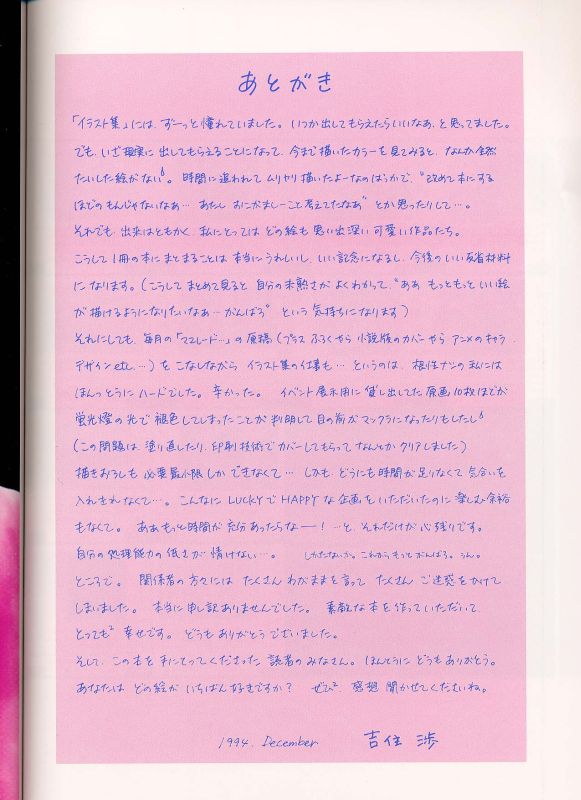 あとがき
「イラスト集」には、ずーっと憧れていました。いつか出してもらえたらいいなあ、と思ってました。
でも、いざ現実に出してもらえることになって、今まで描いたカラーを見てみると、なんか全然
たいした絵がない。時間に追われてムリヤリ描いたよーなのばっかで、“改めて本にする
ほどのもんじゃないなあ…あたし おこがましーこと考えてたなあ”とか思ったりして…。
それでも、出来はともかく、私にとってはどの絵も思い出深い可愛い作品たち。
こうして1冊の本にまとまることは本当にうれいしし、いい記念になるし、今後のいい反省材料
になります。(こうしてまとめて見ると自分の未熟さがよくわかって、“ああ もっともっといい絵
が描けるようになりたいなあ…がんばろ”という気持ちになります)
それにしても、毎月の「ママレード…」の原稿(プラスふろくやら小説版のカバーやらアニメのキャラ・
デザインetc.…)をこなしながらイラスト集の仕事も…というのは、根性ナシの私には
ほんっとうにハードでした。辛かった。イベント展示用に貸し出してた原画10枚ほどが
蛍光燈の光で褪色してしまったことが判明して目の前がマックラになったりもしたし
(この問題は、塗り直したり、印刷技術でカバーしてもらってなんとかクリアしました)
描きおろしも必要最小限しかできなくて…しかも、どうにも時間が足りなくて気合いを
入れきれなくて…。こんなにLUCKYでHAPPYな企画をいただいたのに楽しむ余裕
もなくて。ああもっと時間が充分あったらなー!…と、それだけが心残りです。
自分の処理能力の低さが情けない…。しかたないか。これからもっとがんばろ。うん。
ところで。関係者の方々にはたくさんわがままを言ってたくさんご迷惑をかけて
しまいました。本当に申し訳ありませんでした。素敵な本を作っていただいて、
とっても² 幸せです。どうもありがとうございました。
そして、この本を手にとってくださった読者のみなさん。ほんとうにどうもありがとう。
あなたはどの絵がいちばん好きですか? ぜひ²、感想聞かせてくださいね。
1994. December 吉住 渉